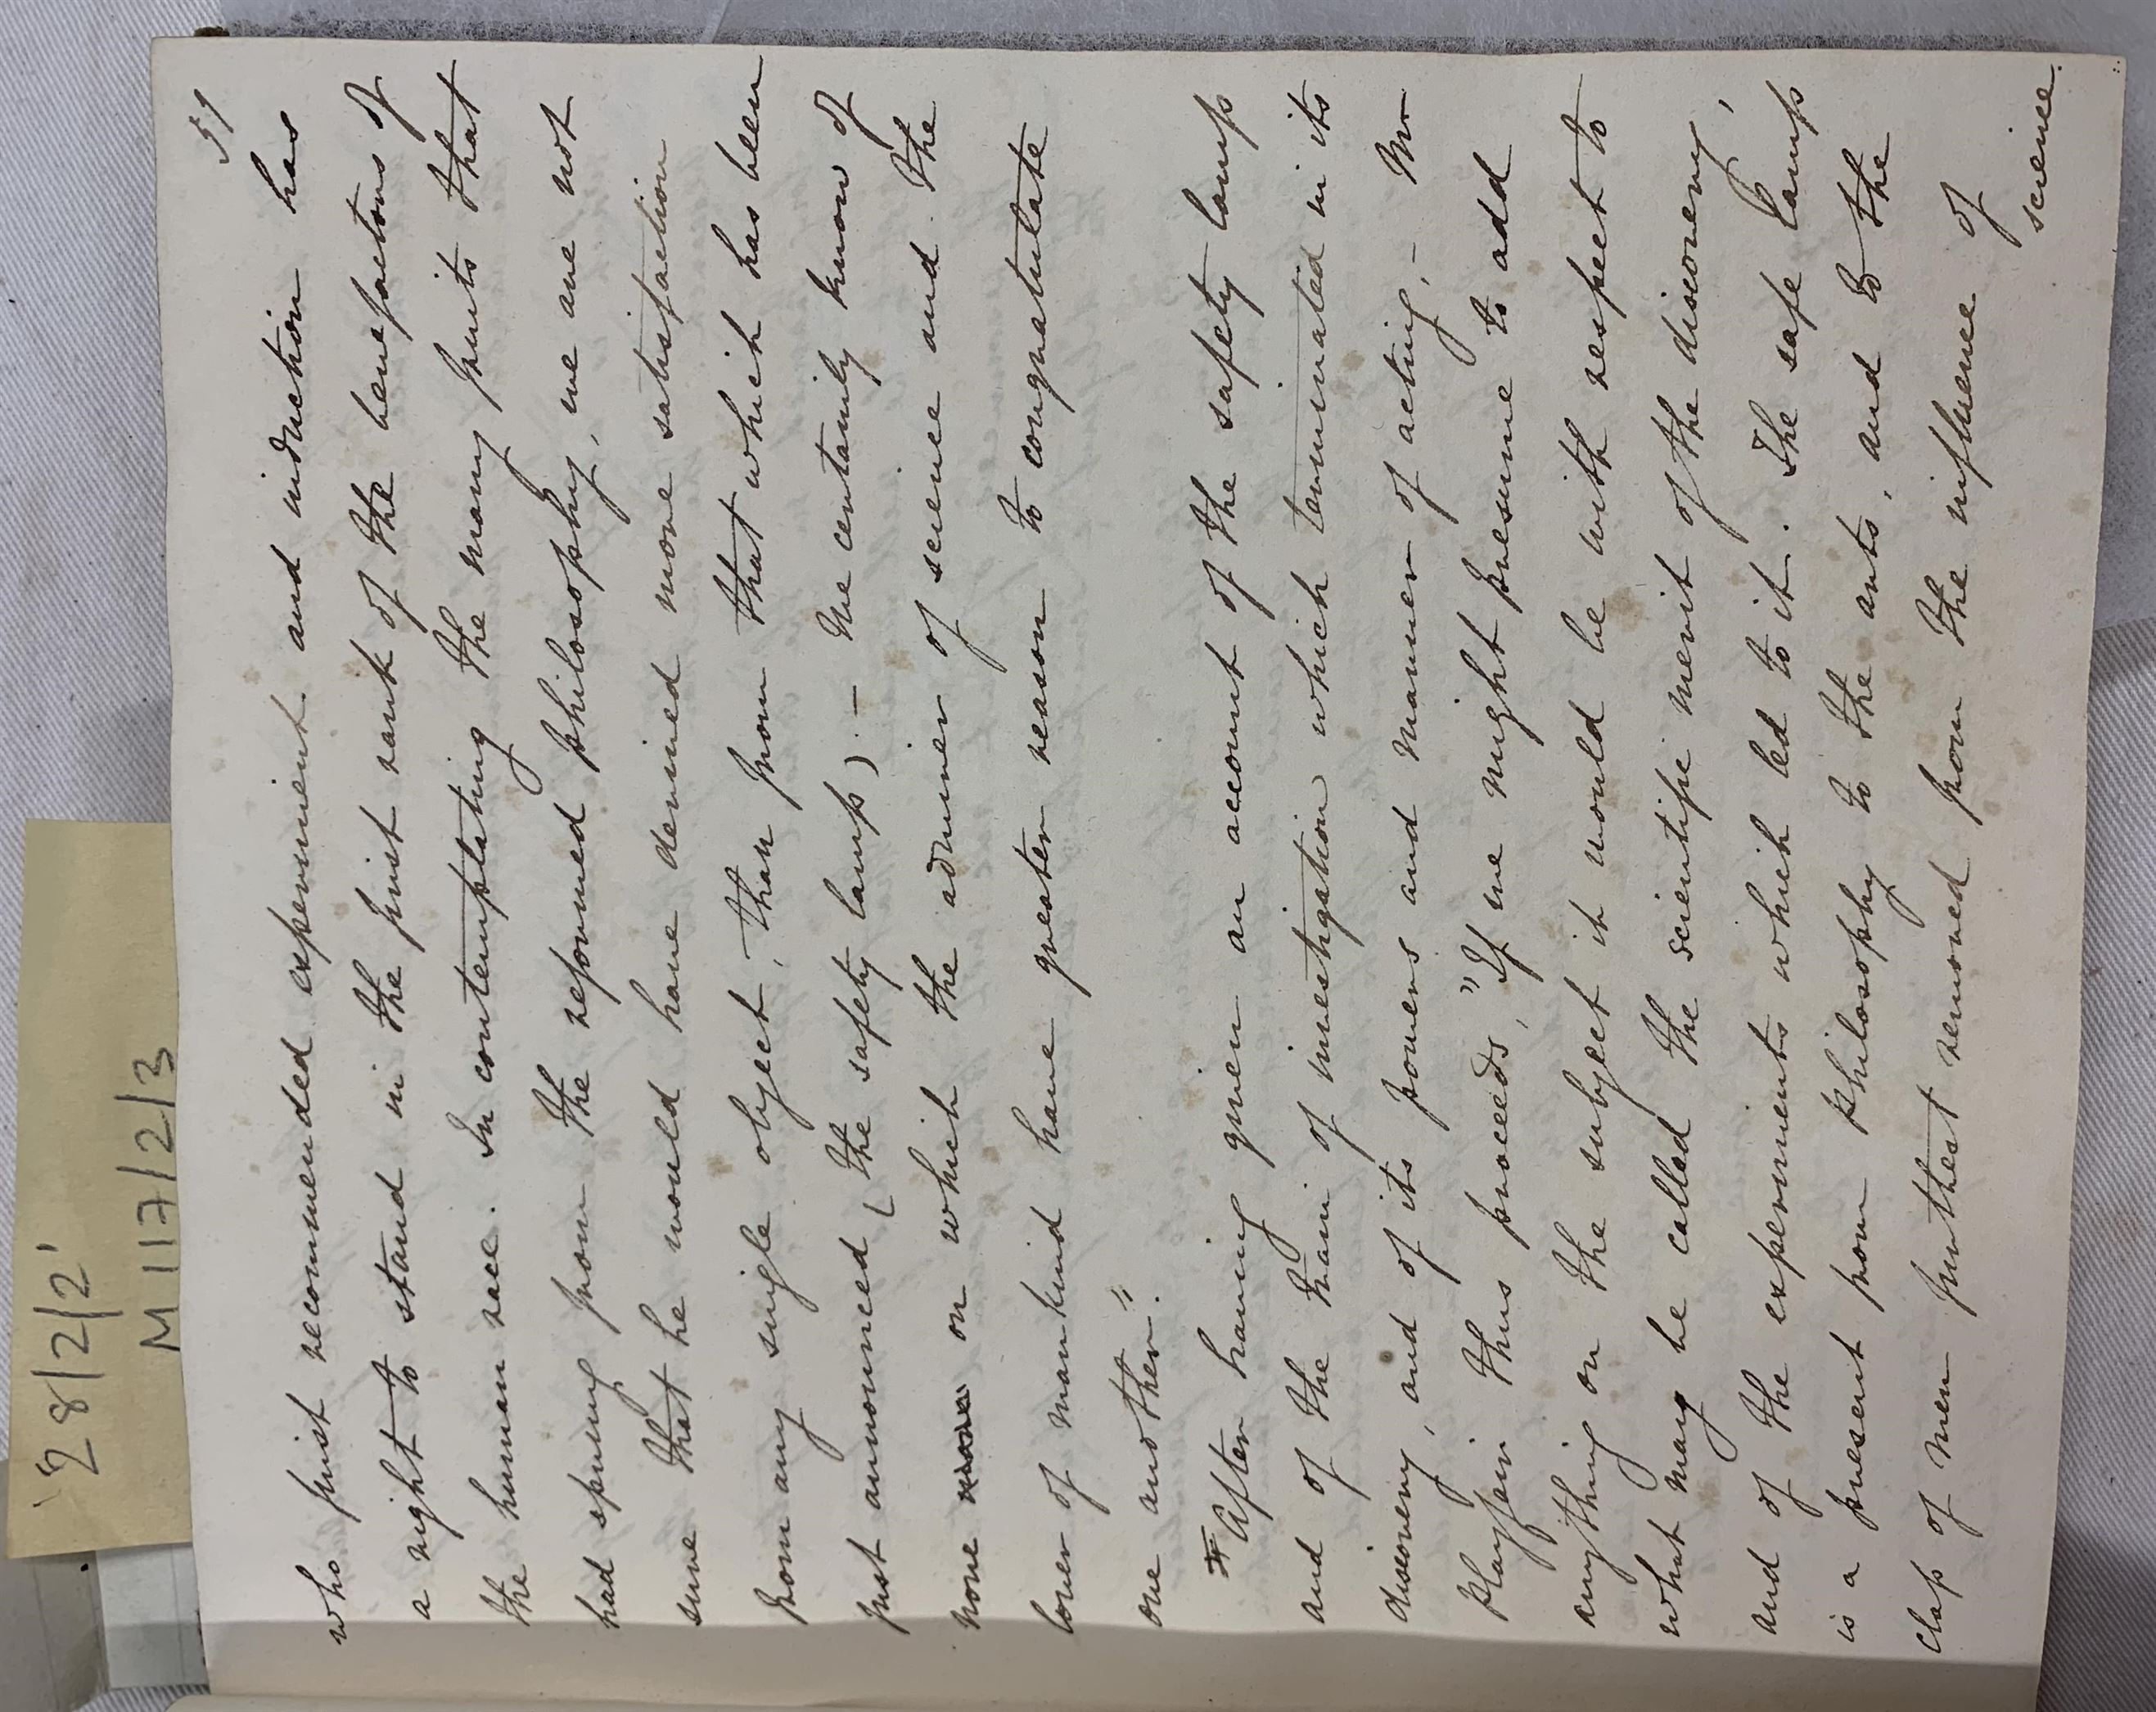 '28/2/2'
M117/2/3
51
who first recommended experiment and induction has
a right to stand in the first rank of the benefactors of
the human race. In contemplating the many fruits that
had sprung from the reformed philosophy, we are not
sure that he would have derived more satisfaction
from any single object, than from that which has been
just announced (the safety lamp) – We certainly know of
none on which the admirer of science and the
lover of mankind have greater reason to congratulate
one another."
* After having given an account of the safety lamp
and of the train of investigation which terminated in its
discovery, and of its powers and manner of acting, – Mr
Playfair thus proceeds, "If we might presume to add
anything on the subject it would be with respect to
what may be called the scientific merit of the discovery,
and of the experiments which led to it. The safe lamp
is a present from philosophy to the arts, and to the
class of men furthest removed from the influence of
science.